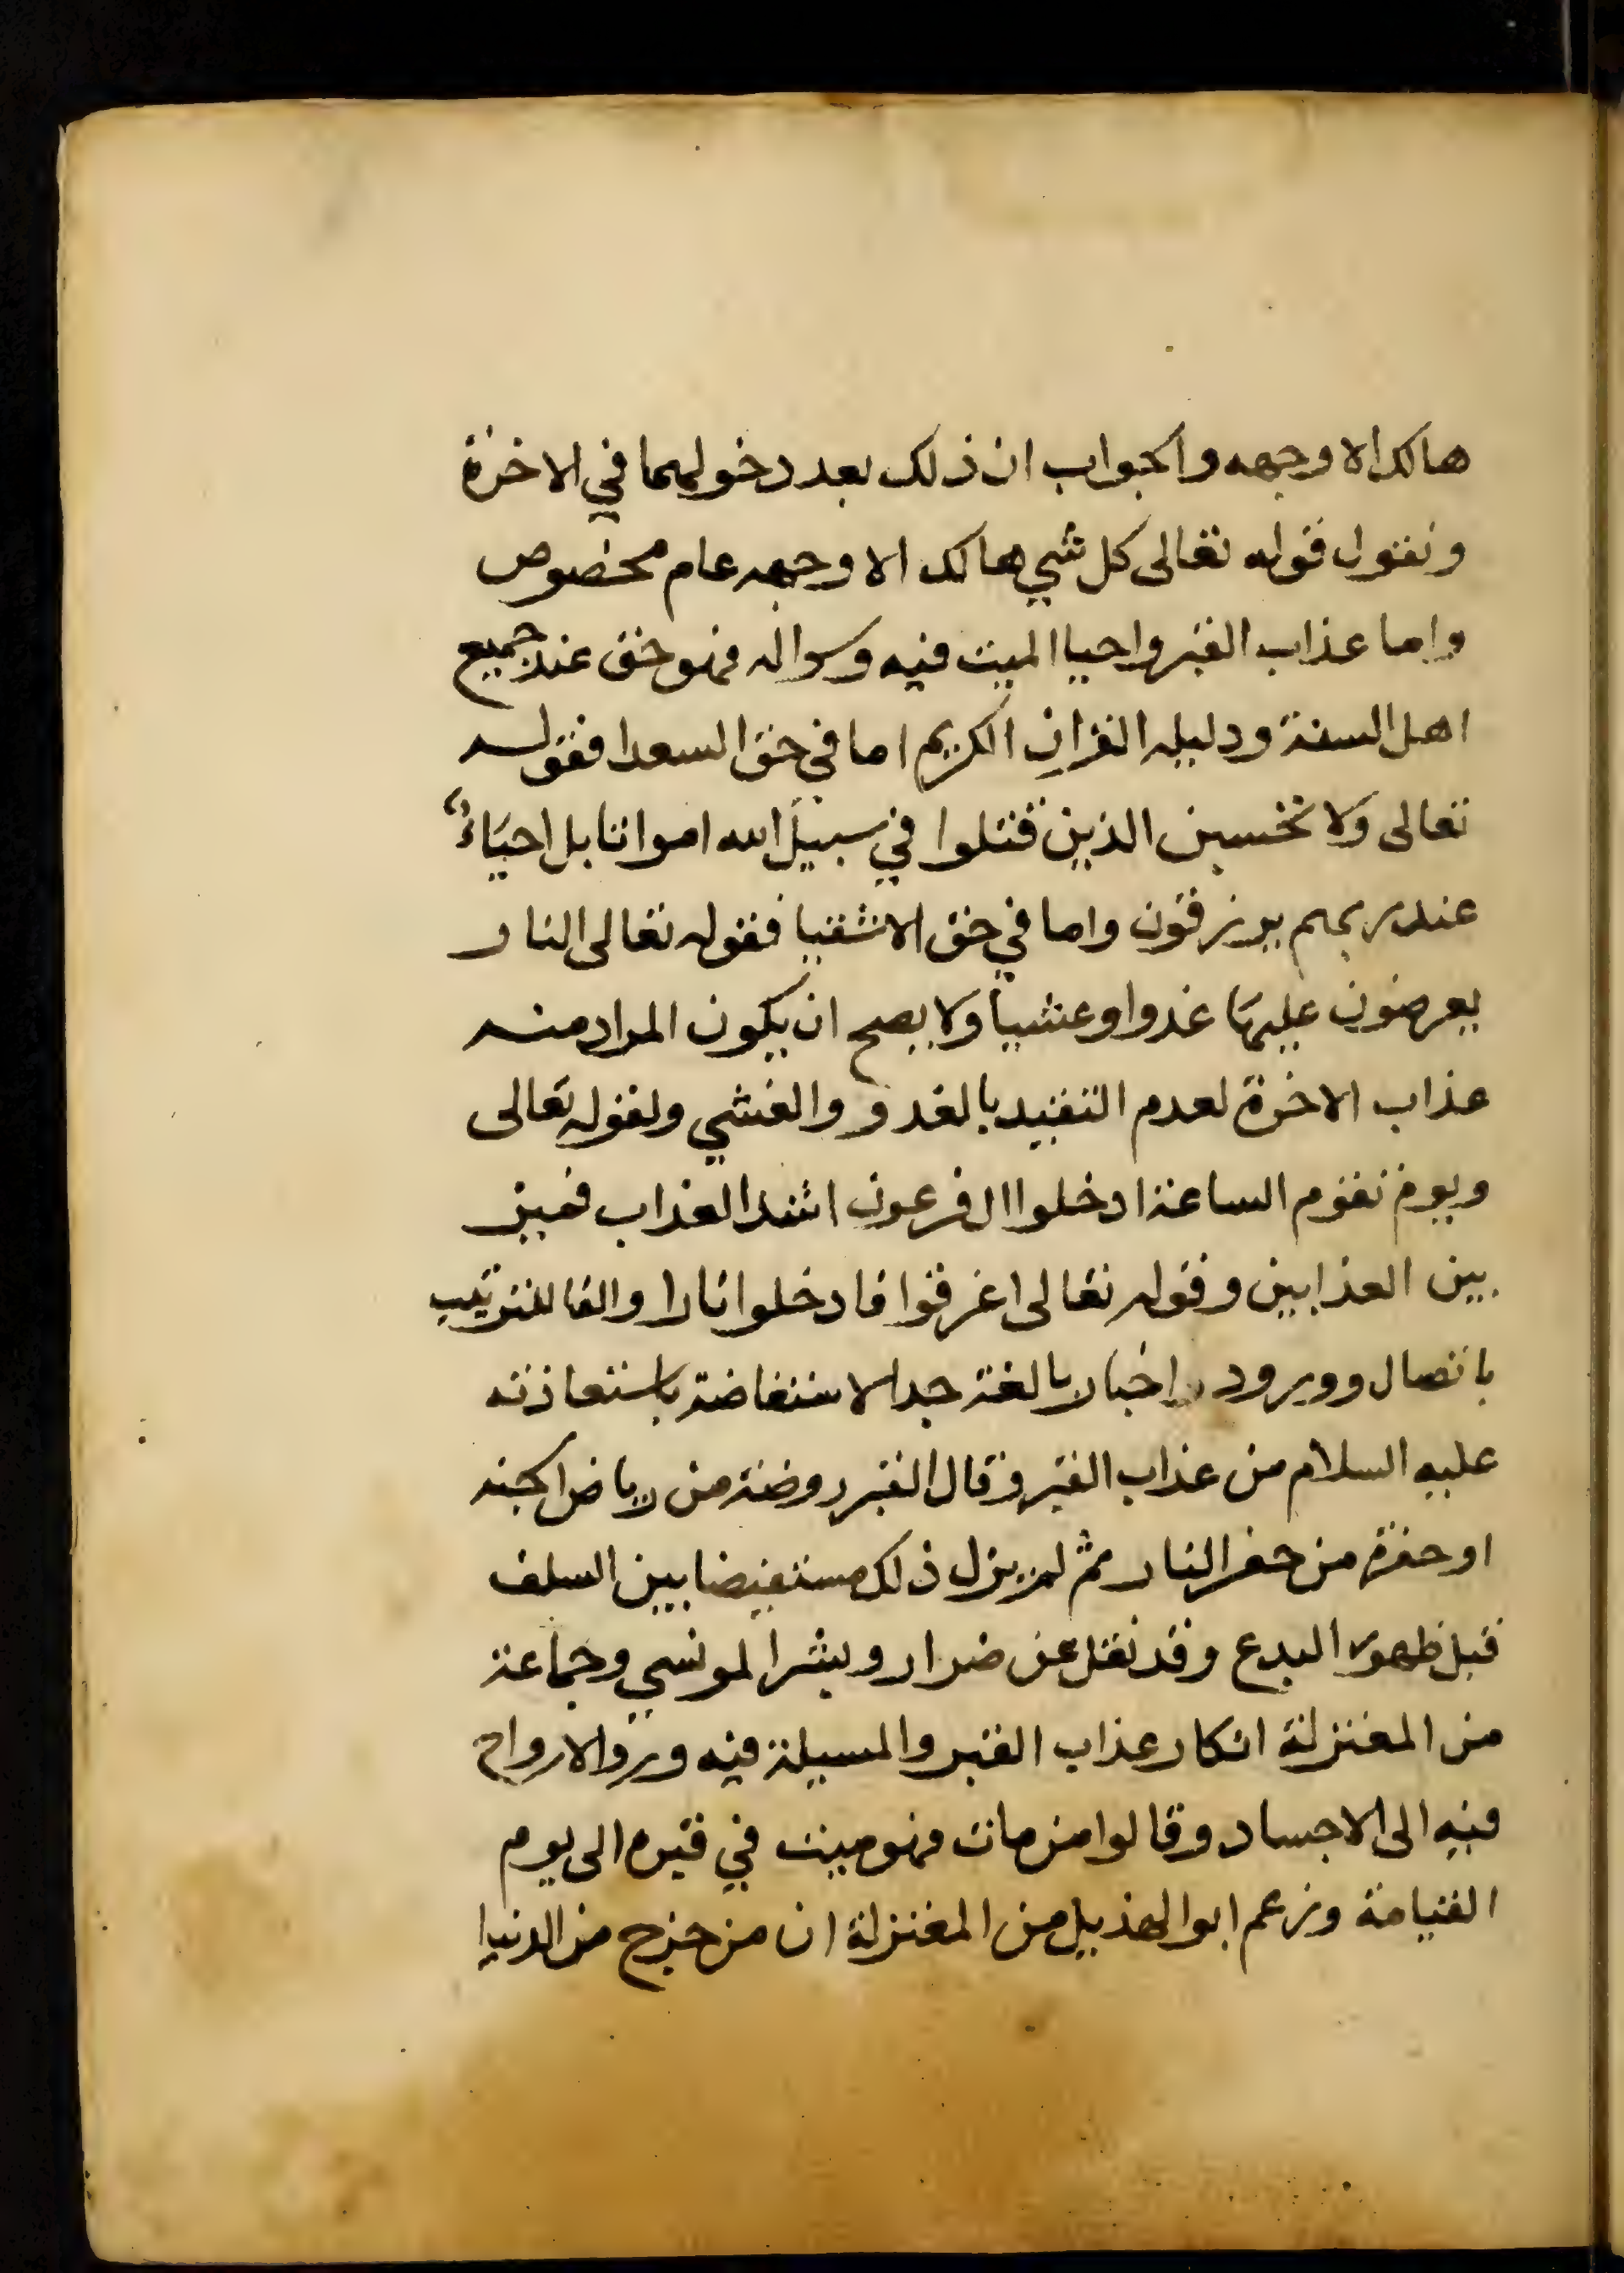 هالك الا وجهه والجواب ان ذلك بعد دخولهما في الاخرة
ونقول قوله تعالى كل شي هالك الا وجهه عام مخصوص
واما عذاب القبر واحيا الميت فيه وسواله فهو حق عند جميع
اهل السنة ودليله القران الكريم اما في حق السعدا فقوله
تعالى ولا تحسبن الذين قتلوا في سبيل الله امواتا بل احيَاءٌ
عند ربهم يرزقون واما في حق الاشقيا فقوله تعالى النار
يعرضون عليها غدوا وعشيا ولا يصح ان يكون المراد منه
عذاب الاخرة لعدم التقييد بالغدو والعشي ولقوله تعالى
ويوم تقوم الساعة ادخلوا ال فرعون اشد العذاب فميز
بين العذابين وقوله تعالى اغرقوا فادخلوا نارا والفا للترتيب
باتصال وورود اخبار بالغة جدا لاستفاضة باستعاذته
عليه السلام من عذاب القبر وقال القبر روضة من رياض الجنه
او حفرة من حفر النار ثم لم يزل ذلك مستفيضا بين السلف
قبل ظهور البدع وقد نقل عن ضرار وبشر المونسي وجماعة
من المعتزلة انكار عذاب القبر والمسيلة فيه ورد الارواح
فيه الى الاجساد وقالوا من مات فهو ميت في قبره الى يوم
القيامة وزعم ابو الهذيل من المعتزلة ان من خرج من الدنيا